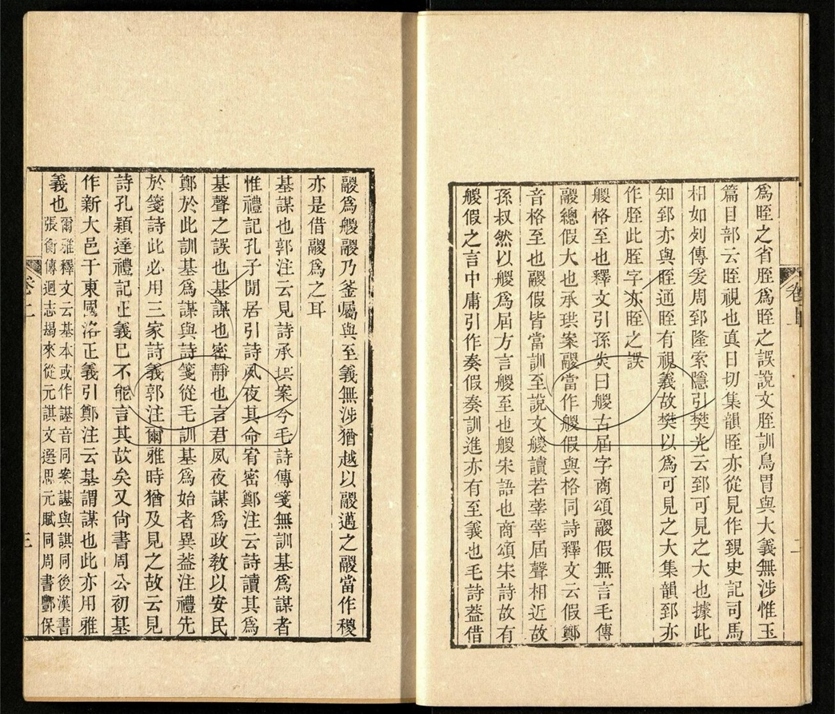 為胵之省胵為胵之誤說文胵訓鳥胃與大義無涉惟玉
篇目部云眰視也真日切集韻眰亦從見作覟史記司馬
相如列傳爰周郅隆索隱引樊光云郅可見之大也據此
知郅亦與眰通眰有視義故樊以為可見之大集韻郅亦
作胵此胵字亦眰之誤
艐格至也釋文引孫炎曰艐古届字商頌鬷假無言毛傳
鬷總假大也承珙案鬷當作艐假與格同詩釋文云假鄭
音格至也鬷假皆當訓至說文艐讀若莘莘届聲相近故
孫叔然以艐為届方言艐至也艐宋語也商頌宋詩故有
艐假之言中庸引作奏假奏訓進亦有至義也毛詩葢借
鬷為艐鬷乃釜屬與至義無涉猶越以鬷邁之鬷當作稯
亦是借鬷為之耳
基謀也郭注云見詩承珙案今毛詩傳箋無訓基為謀者
惟禮記孔子閒居引詩夙夜其命宥密鄭注云詩讀其為
基聲之誤也基謀也密靜也言君夙夜謀為政教以安民
鄭於此訓基為謀與詩箋從毛訓基為始者異葢注禮先
於箋詩此必用三家詩義郭注爾雅時猶及見之故云見
詩孔穎達禮記正義已不能言其故矣又尙書周公初基
作新大邑于東國洛正義引鄭注云基謂謀也此亦用雅
義也爾雅釋文云基本或作諆音同案諆與諆同後漢書
張衡傳迴志朅來從元諆文選思元賦同周書酆保
卷上
二
卷上
三